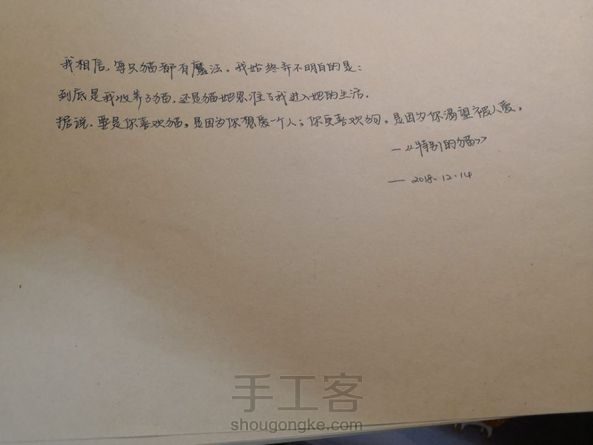 我相信,每只猫都有魔法。我始终弄不明白的是:
到底是我收养了猫,还是猫她恩准了我进入她的生活.
据说.要是你喜欢猫。是因为你想爱一个人;你更喜欢狗。是因为你渴望被人爱。
—《特别的猫》
— 2018.12.14
手工客
shougongke.com